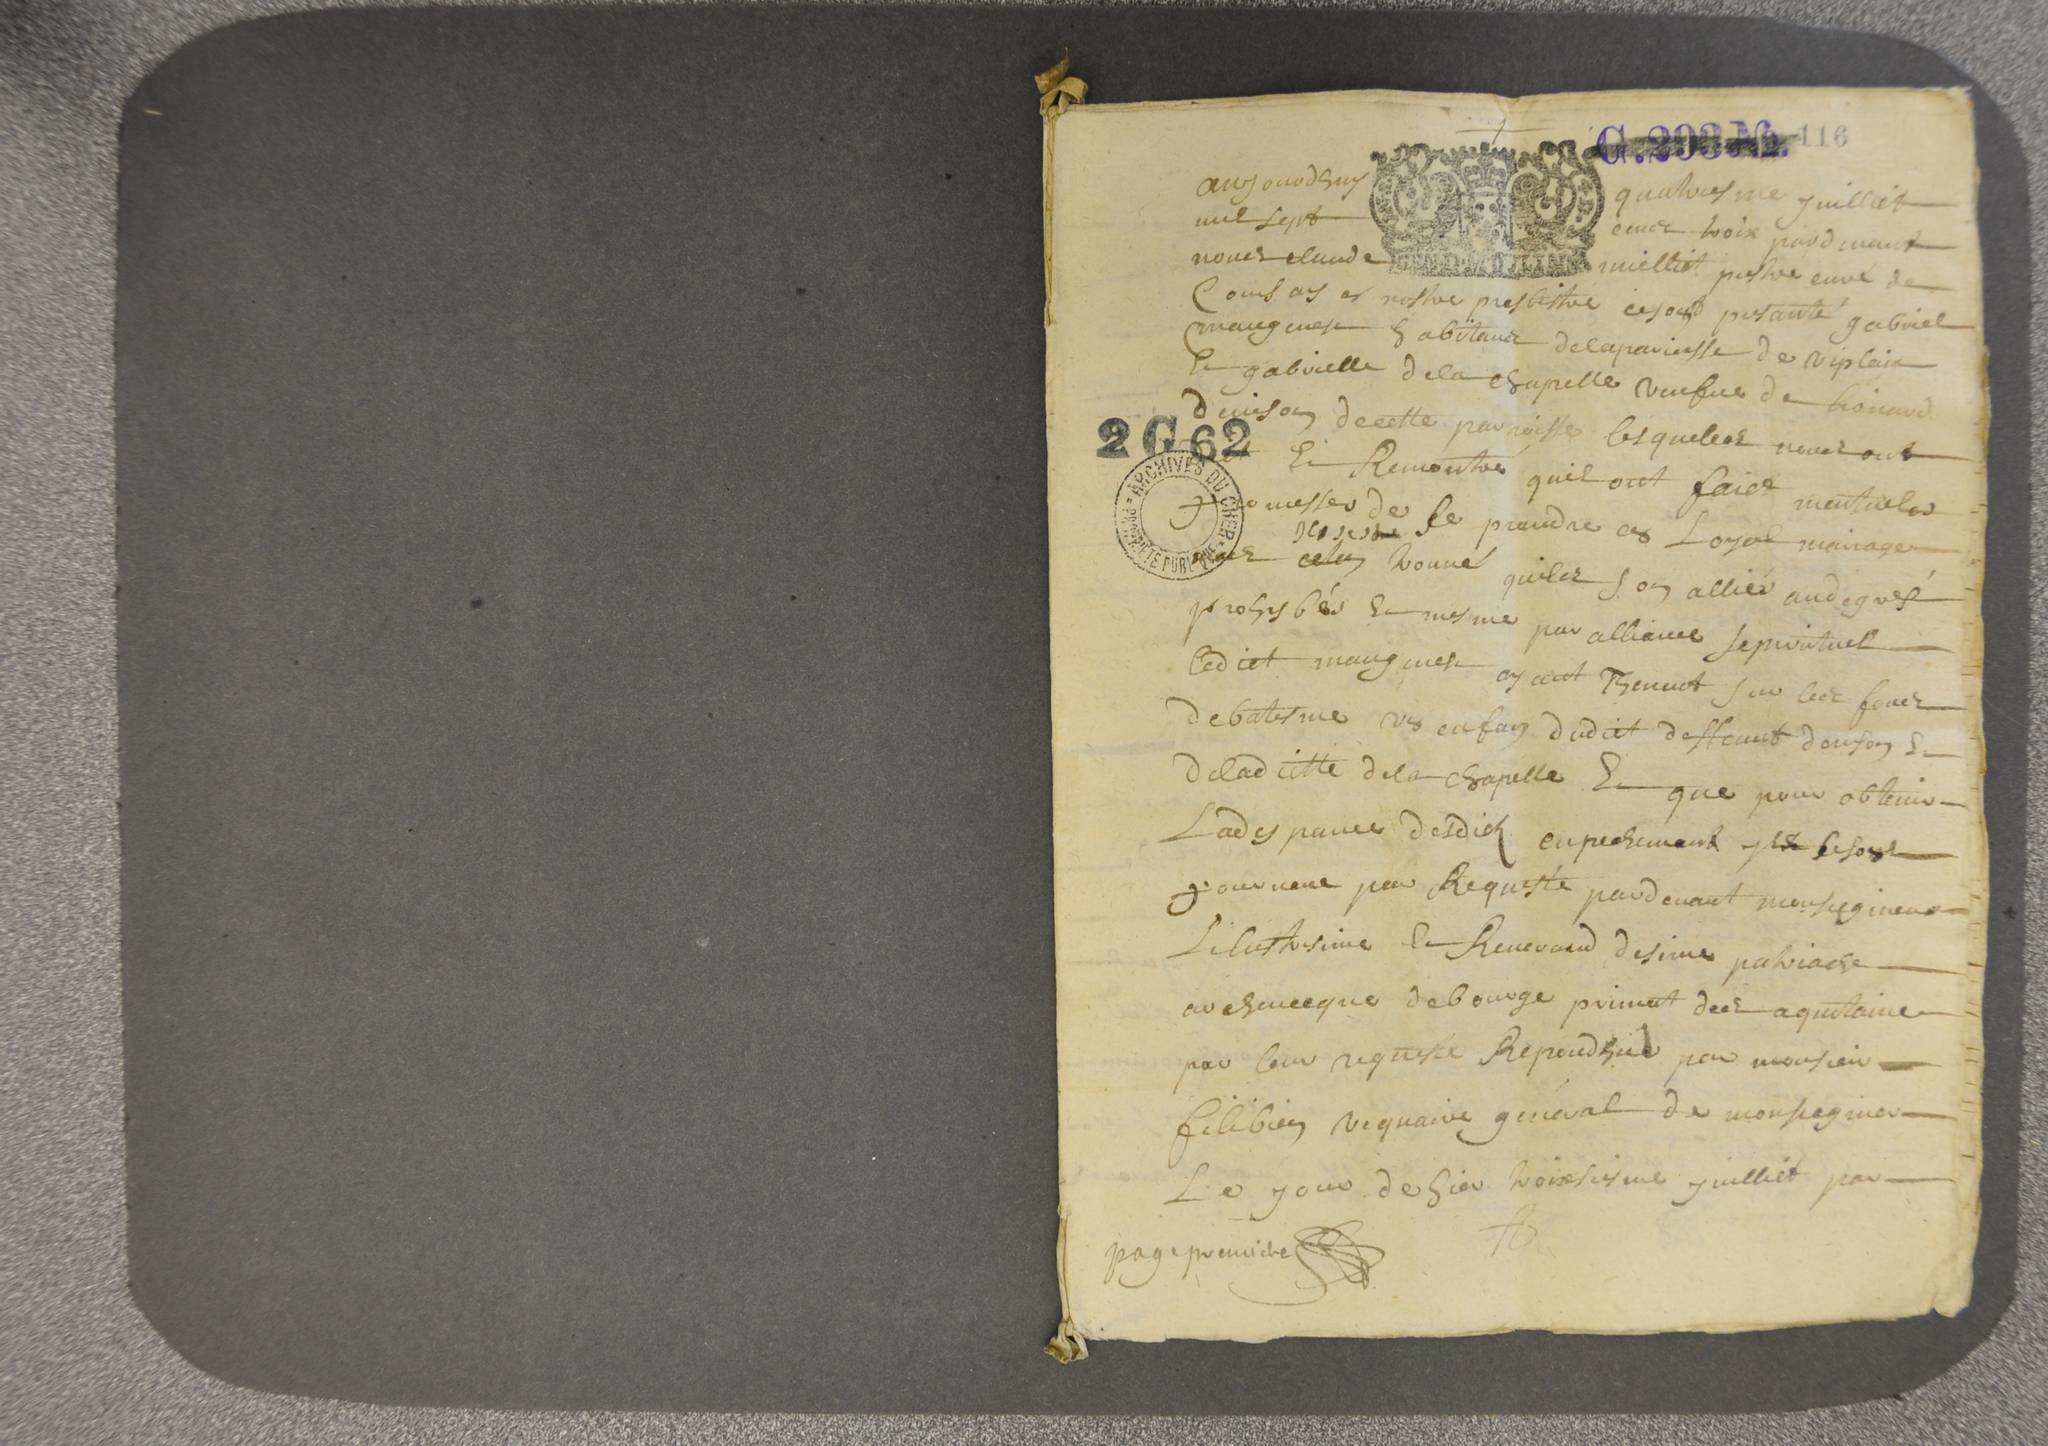 G. 293 116
aujourdhuy quatriesme juilliet
mil sept cens troix pardevant
nous claude milliet prestre curé de
Coursay en nostre presbitre ce sont presanté gabriel
maugenest habitans de la pariesse de viplaix
Et gabrielle de la chapelle veufve de
denison de cette parroisse lesquelles nous ont
Et Remontré quil ont faict mentueles
promesses de se prendre en Loyal mariage
trouvé quiles son alliés au degrés
prohybés Et mesme par alliance sepirituel
ledict maugenest ayant Thenut sur les fons
de batesme un enfan dudict deffunt denison Et
de ladictte de la chapelle Et que pour obtenir
La dispance desdich enpechement ils se sont
pourveue par Requeste pardevant monseigneur
Lilustrisime Et Reverand disime patriache
archeveque de bourge primat des aquitaine
par leur requeste Repondhue par monsieur
filibien viquaire général de monseigneur
Le jour de hier troixsiesme juilliet par
page premiere
2 G 62
ARCHIVES DU CHER
PROPRIETE PUBLIQUE